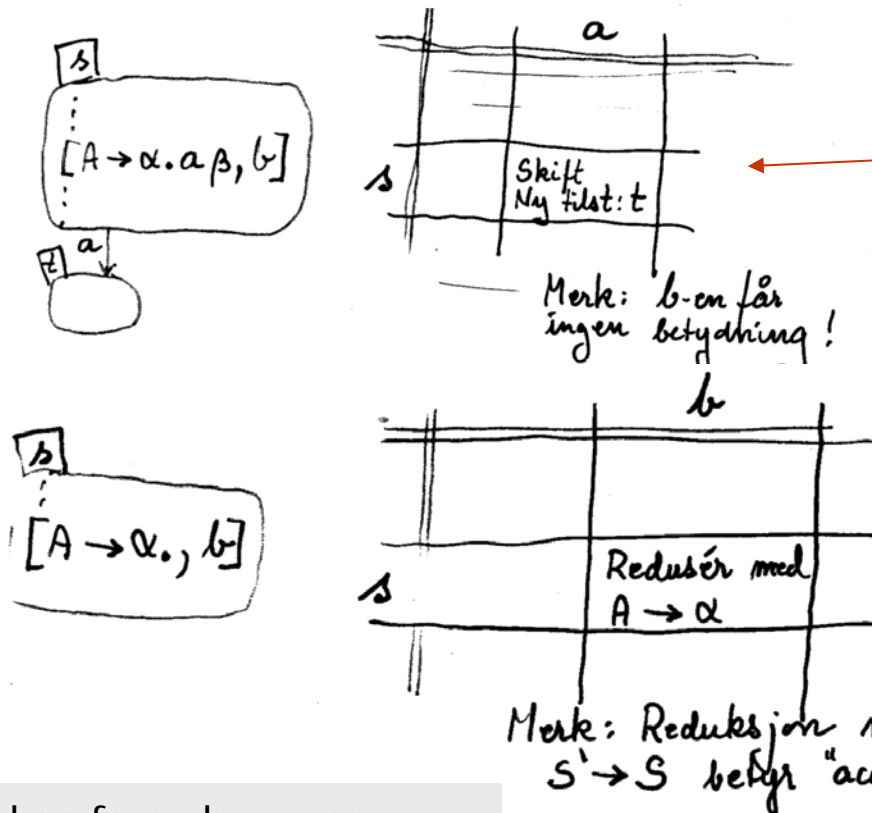 a
s
[A → α.a β, b]
s
Skift
Ny tilst: t
a
t
Merk: b-en får
ingen betydning!
b
s
[A → α., b]
s
Redusér med
A → α
Merk: Reduksjon
S' → S betyr "acc